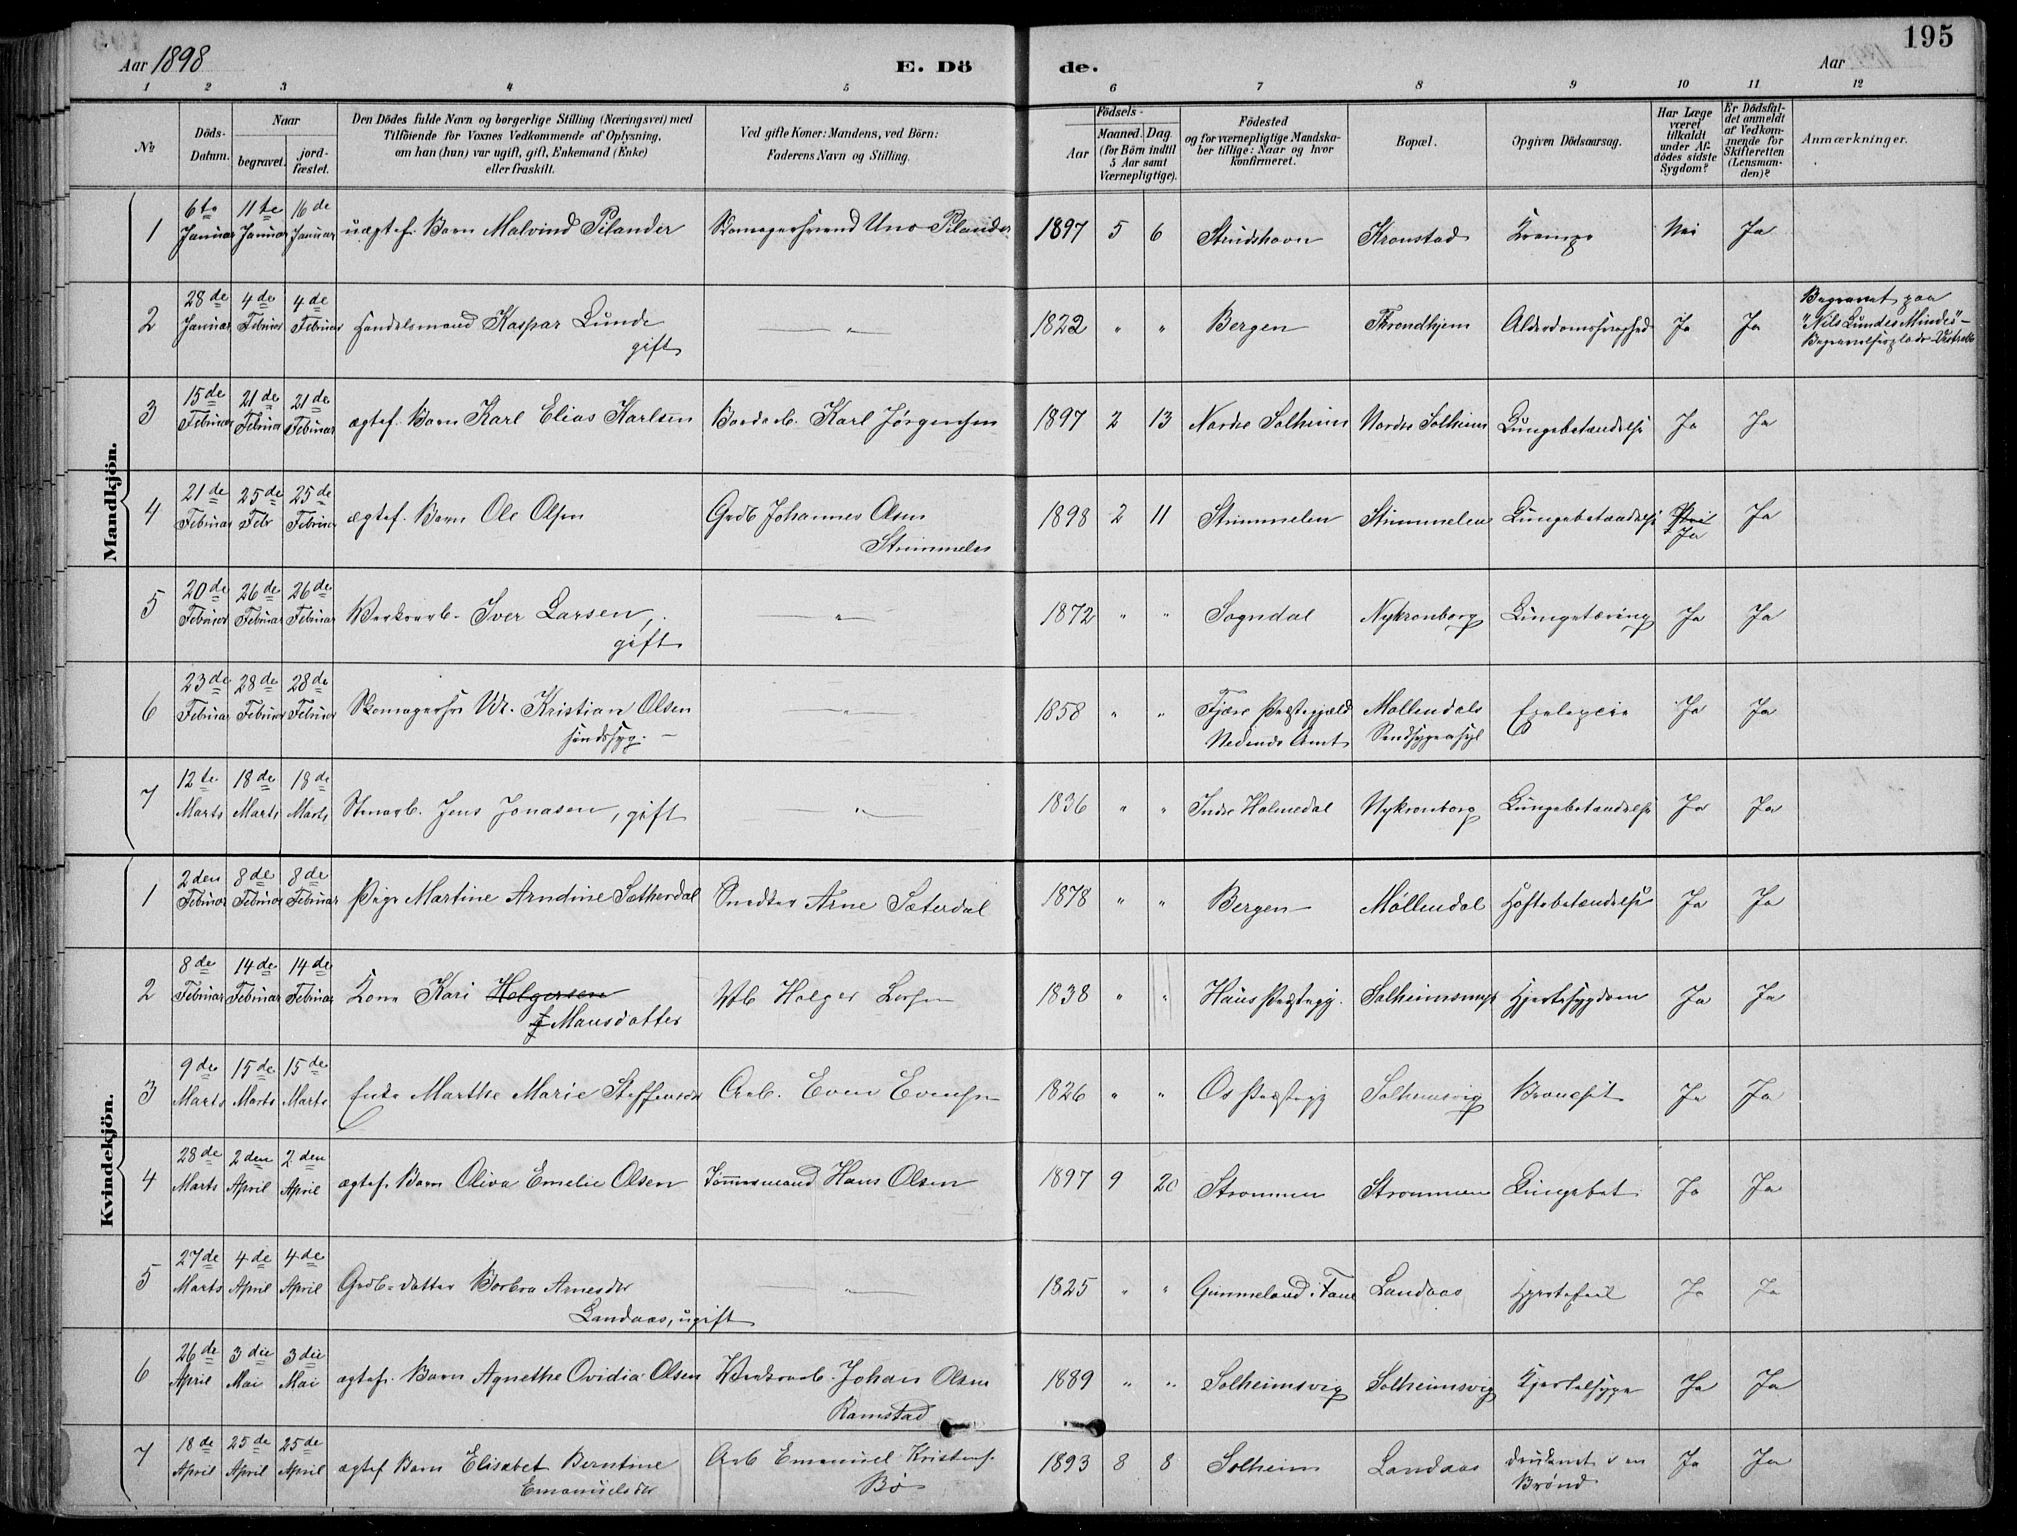 195
Aar 1898
E. Dö
de.
Aar
1 2 3 4 5 6 7 8 9 10 11 12
№
Döds-Datum.
Naar
begravet.
jordfæstet.
Den Dödes fulde Navn og borgerlige Stilling (Næringsvei) med
Tilföiende for Voxnes Vedkommende af Oplysning,
om han (hun) var ugift, gift, Enkemand (Enke)
eller fraskilt.
Ved gifte Koner: Mandens, ved Börn:
Faderens Navn og Stilling.
Födsels-
Aar
Maaned. Dag.
(for Börn indtil
5 Aar samt
Værnepligtige).
Födested
og for værnepligtige Mandska-
ber tillige: Naar og hvor
konfirmeret.
Bopæl.
Opgiven Dödsaarsag.
Har Læge
været
tilkaldt
under Af-
dödes sidste
Sygdom?
Er Dödsfal-
det anmeldt
af Vedkom-
mende for
Skifteretten
(Lensman-
den)?
Anmærkninger.
Mandkjön.
1 6te Januar 11te Januar 16de Januar uægtef. Barn Malvind Pilander Skomagersvend Uno Pilander 1897 5 6 Studshavn Kronstad Krampe Nei Ja
2 28de Januar 4de Februar 4de Februar Handelsmand Kaspar Lunde gift " 1822 " " Bergen Throndhjem Alderdomssvaghed Ja Ja Begravet paa "Nils Lundes Minde"- Begravelsesplads
3 15de Februar 21de Februar 21de Februar ægtef. Barn Karl Elias Karlsen Bordarb. Karl Jørgensen 1897 2 13 Nordre Solheim Nordre Solheim Lungebetændelse Ja Ja
4 21de Februar 25de Febr 25de Februar ægtef. Barn Ole Olsen Grdb Johannes Olsen Strimmelen 1898 2 11 Strimmelen Strimmelen Lungebetændelse Ja Ja
5 20de Februar 26de Februar 26de Februar Værksarb. Iver Larsen, gift " 1872 " " Sogndal Nykronborg Lungetæring Ja Ja
6 23de Februar 28de Februar 28de Februar Kristian Olsen sindssyg. " 1858 " " Fjære Præstegjæld Nedenæs Amt Møllendals Sindsygeasyl Epelepcie Ja Ja
7 12te Marts 18de Marts 18de Marts Stenarb. Jens Jonasen, gift " 1836 " " Indre Holmedal Nykronborg Lungebetændelse Ja Ja
Kvindekjön.
1 2den Februar 8de Februar 8de Februar Pige Martine Arndine Sætherdal Snedker Arne Sæterdal 1878 " " Bergen Møllendal Hoftebetændelse Ja Ja
2 8de Februar 14de Februar 14de Februar Kone Kari Holgersen f. Monsdatter Holger Larsen 1838 " " Haus Præstegj. Solheimsvig Hjertesygdom Ja Ja
3 9de Marts 15de Marts 15de Marts Enke Marthe Marie Steffensdtr Arb. Even Evensen 1826 " " Os Præstegj Solheimsvig Bronchit Ja Ja
4 28de Marts 2den April 2den April ægtef. Barn Oliva Emelie Olsen Tømmermand Hans Olsen 1897 9 20 Strømmen Strømmen Lungebet. Ja Ja
5 27de Marts 4de April 4de April Grdb.datter Borbra Arnesdtr Landaas, ugift " 1825 " " Gimmeland i Fane Landaas Hjertefeil Ja Ja
6 26de April 3die Mai 3die Mai ægtef. Barn Agnethe Ovidia Olsen Værksarb. Johan Olsen Ramstad 1889 " " Solheimsvig Solheimsvig Kjertelsyge Ja Ja
7 18de April 25de April 25de April ægtef Barn Elisabet Berntine Emanuelsdtr Arb Emanuel Kristens. Bø 1893 8 8 Solheim Landaas druknet i en Brønd Ja Ja